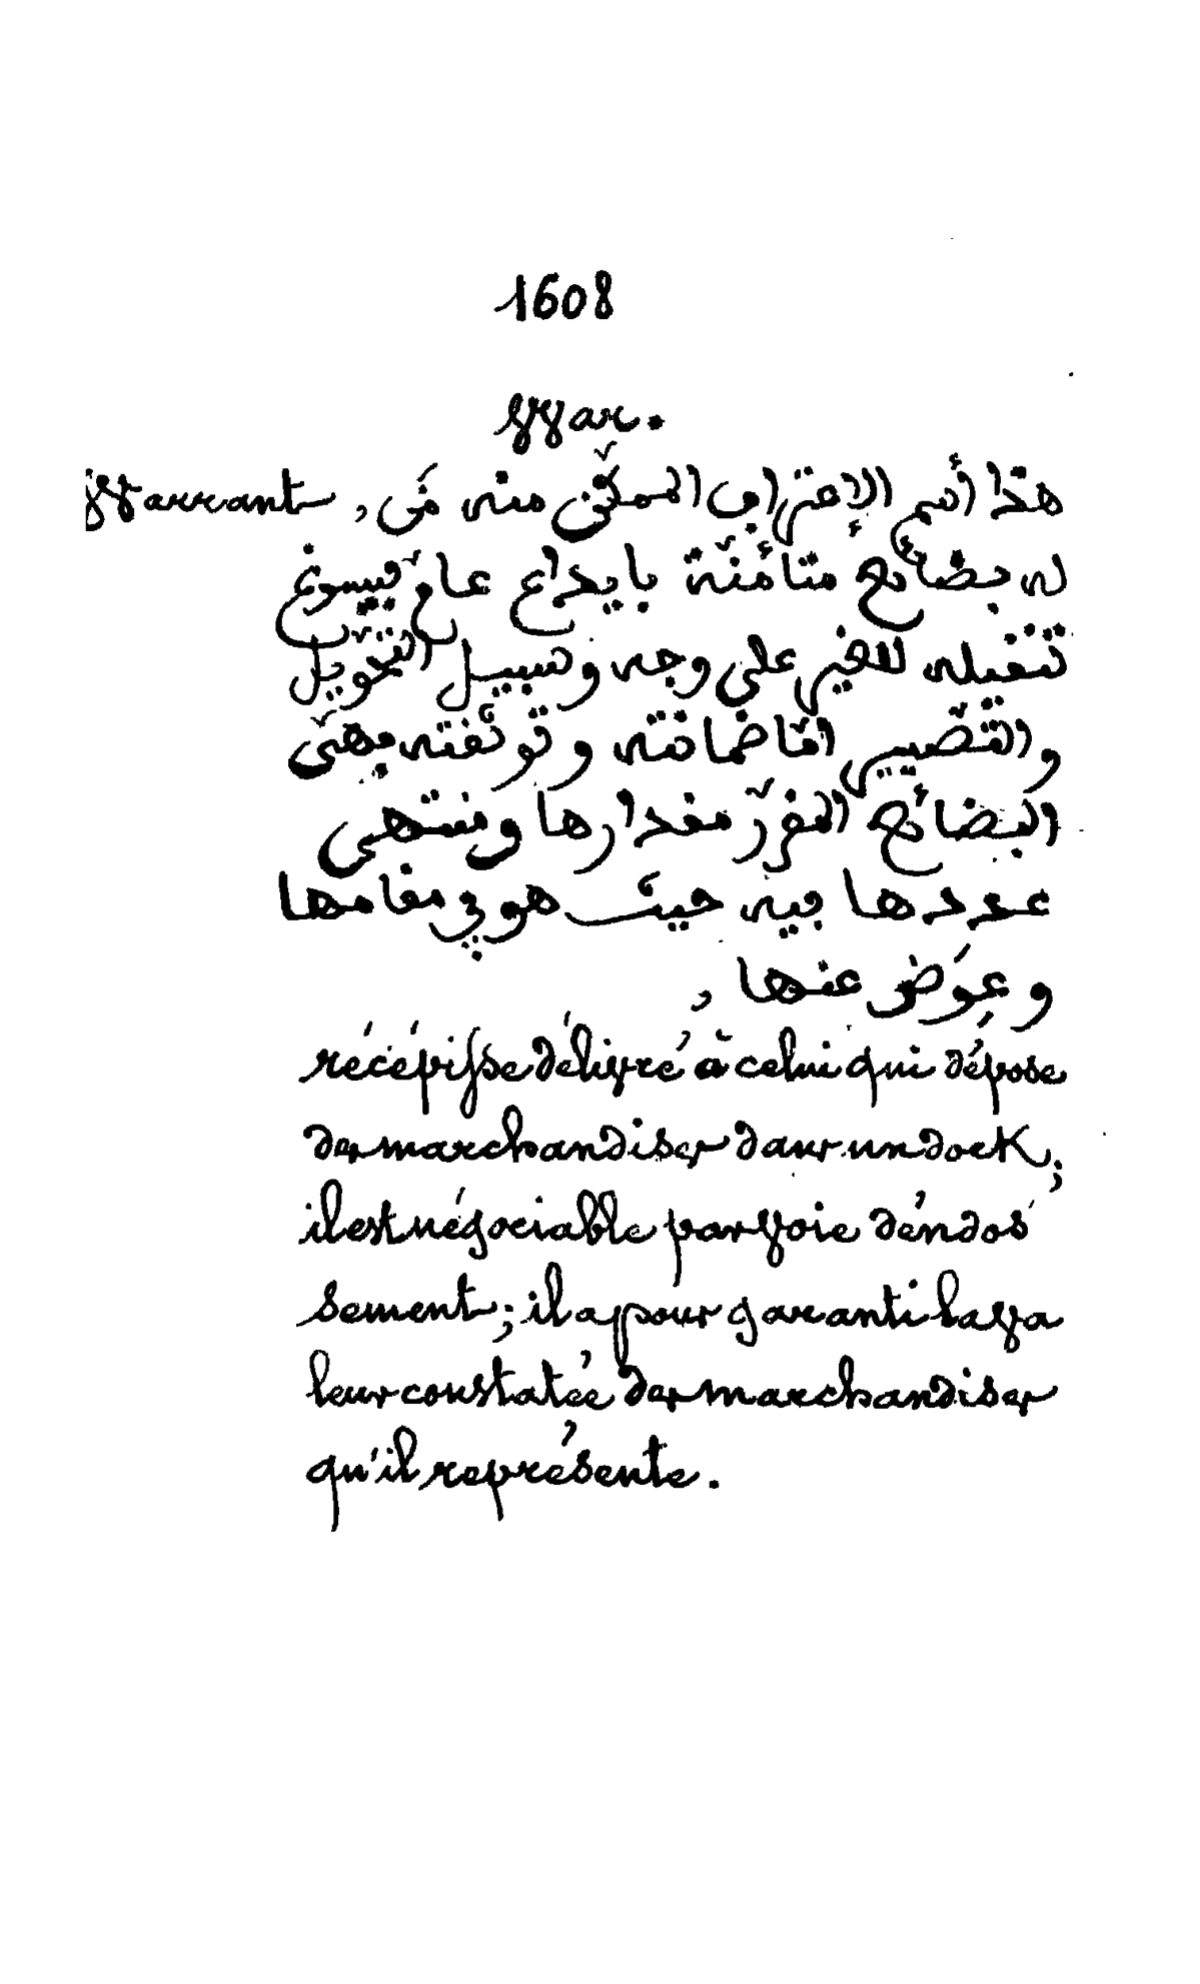 1608
War.
Warrant, هذا أسم الإعتراف الممكّن منه مَن
له بضائع متأمّنة بايداع عامّ فيسوغ
تنفيله للغير على وجه وسبيل التحويل
والتّصيير امّا ضمانته وتوثفته فهى
البضائع المفرّر مفدارها ومنتهى
عددها فيه حيث هو في مفامها
وعِوَض عنها,
récépisse délivré à celui qui dépose
des marchandises dans un dock;
il est négociable par voie d'éndos
sement; il a pour garanti la va
leur constatée des marchandises
qu'il représente.